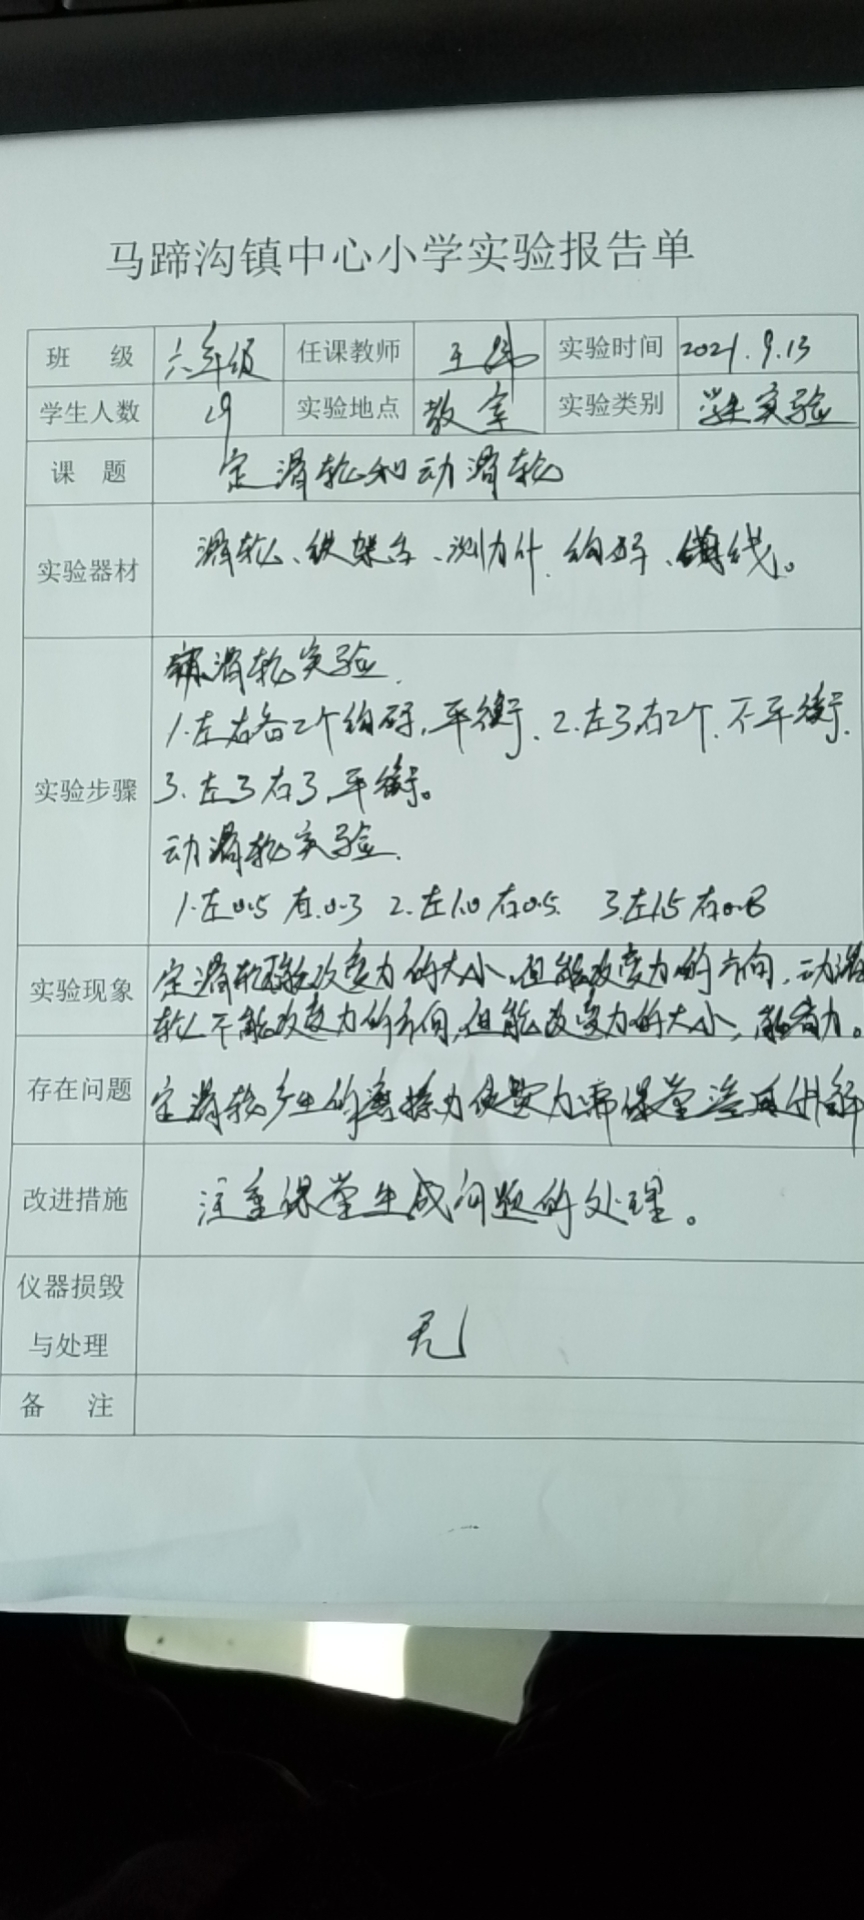 马蹄沟镇中心小学实验报告单
班 级 六年级 任课教师 王 实验时间 2021.9.13
学生人数 19 实验地点 教室 实验类别 学生实验
课 题 定滑轮和动滑轮
实验器材 滑轮、铁架台、测力计、钩码、线。
滑轮实验.
1.左右各2个钩码,平衡.2.左3右2个.不平衡.
实验步骤 3.左3右3,平衡。
动滑轮实验.
1.左0.5 右0.3 2.左1.0右0.5. 3.左1.5右0.8
实验现象 定滑轮不能改变力的大小,但能改变力的方向,动滑
轮不能改变力的方向,但能改变力的大小,能省力。
存在问题 定滑轮产生的摩擦力使费力需课堂讲解
改进措施 注重课堂生成问题的处理。
仪器损毁
与处理 无
备 注